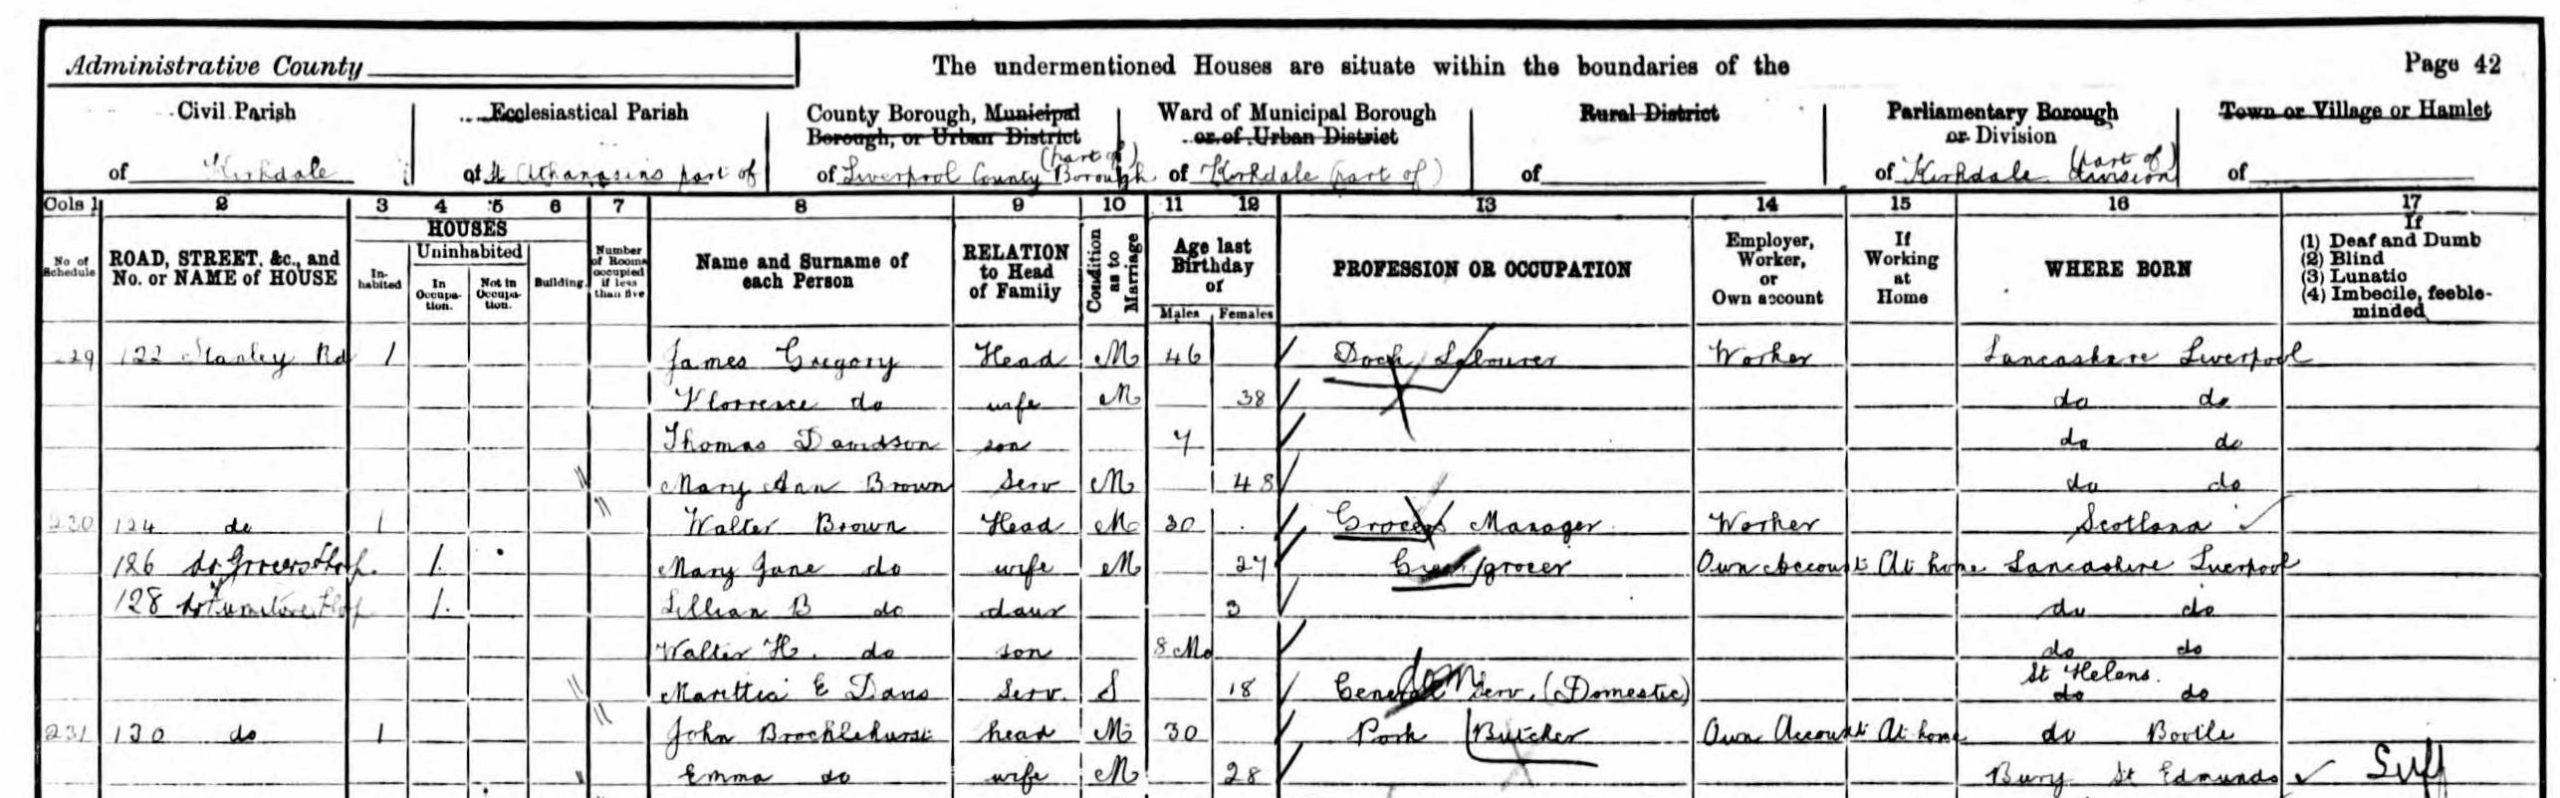 Administrative County The undermentioned Houses are situate within the boundaries of the Page 42
Civil Parish Ecclesiastical Parish County Borough, Municipal Borough, or Urban District Ward of Municipal Borough or of Urban District Rural District Parliamentary Borough or Division Town or Village or Hamlet
of Kirkdale of St Athanasius part of of Liverpool County Borough (part of) of Kirkdale (part of) of of Kirkdale (part of) division of
Cols 1 2 3 4 5 6 7 8 9 10 11 12 13 14 15 16 17
No of Schedule ROAD, STREET, &c., and No. or NAME of HOUSE HOUSES Inhabited Uninhabited In Occupation. Not in Occupation. Building. Number of Rooms occupied if less than five Name and Surname of each Person RELATION to Head of Family Condition as to Marriage Age last Birthday of Males Females PROFESSION OR OCCUPATION Employer, Worker, or Own account If Working at Home WHERE BORN If (1) Deaf and Dumb (2) Blind (3) Lunatic (4) Imbecile, feeble-minded
229 122 Stanley Rd 1 James Gregory Head M 46 Dock Labourer Worker Lancashire Liverpool
Florrence do wife M 38 do do
Thomas Davidson son 7 do do
Mary Ann Brown Serv M 48 do do
230 124 do 1 Walter Brown Head M 30 Grocers Manager Worker Scotland
126 do Grocers Shop. 1 Mary Jane do wife M 27 Green grocer Own Account At home Lancashire Liverpool
128 do Furniture Shop 1 Lillian B do daur 3 do do
Walter H. do son 8 Mo do do
E Davis Serv. S 18 General Serv. (Domestic) St Helens. do do
231 130 do 1 John Brocklehurst head M 30 Pork Butcher Own Account At home do Bootle
Emma do wife M 28 Bury St Edmunds Suff